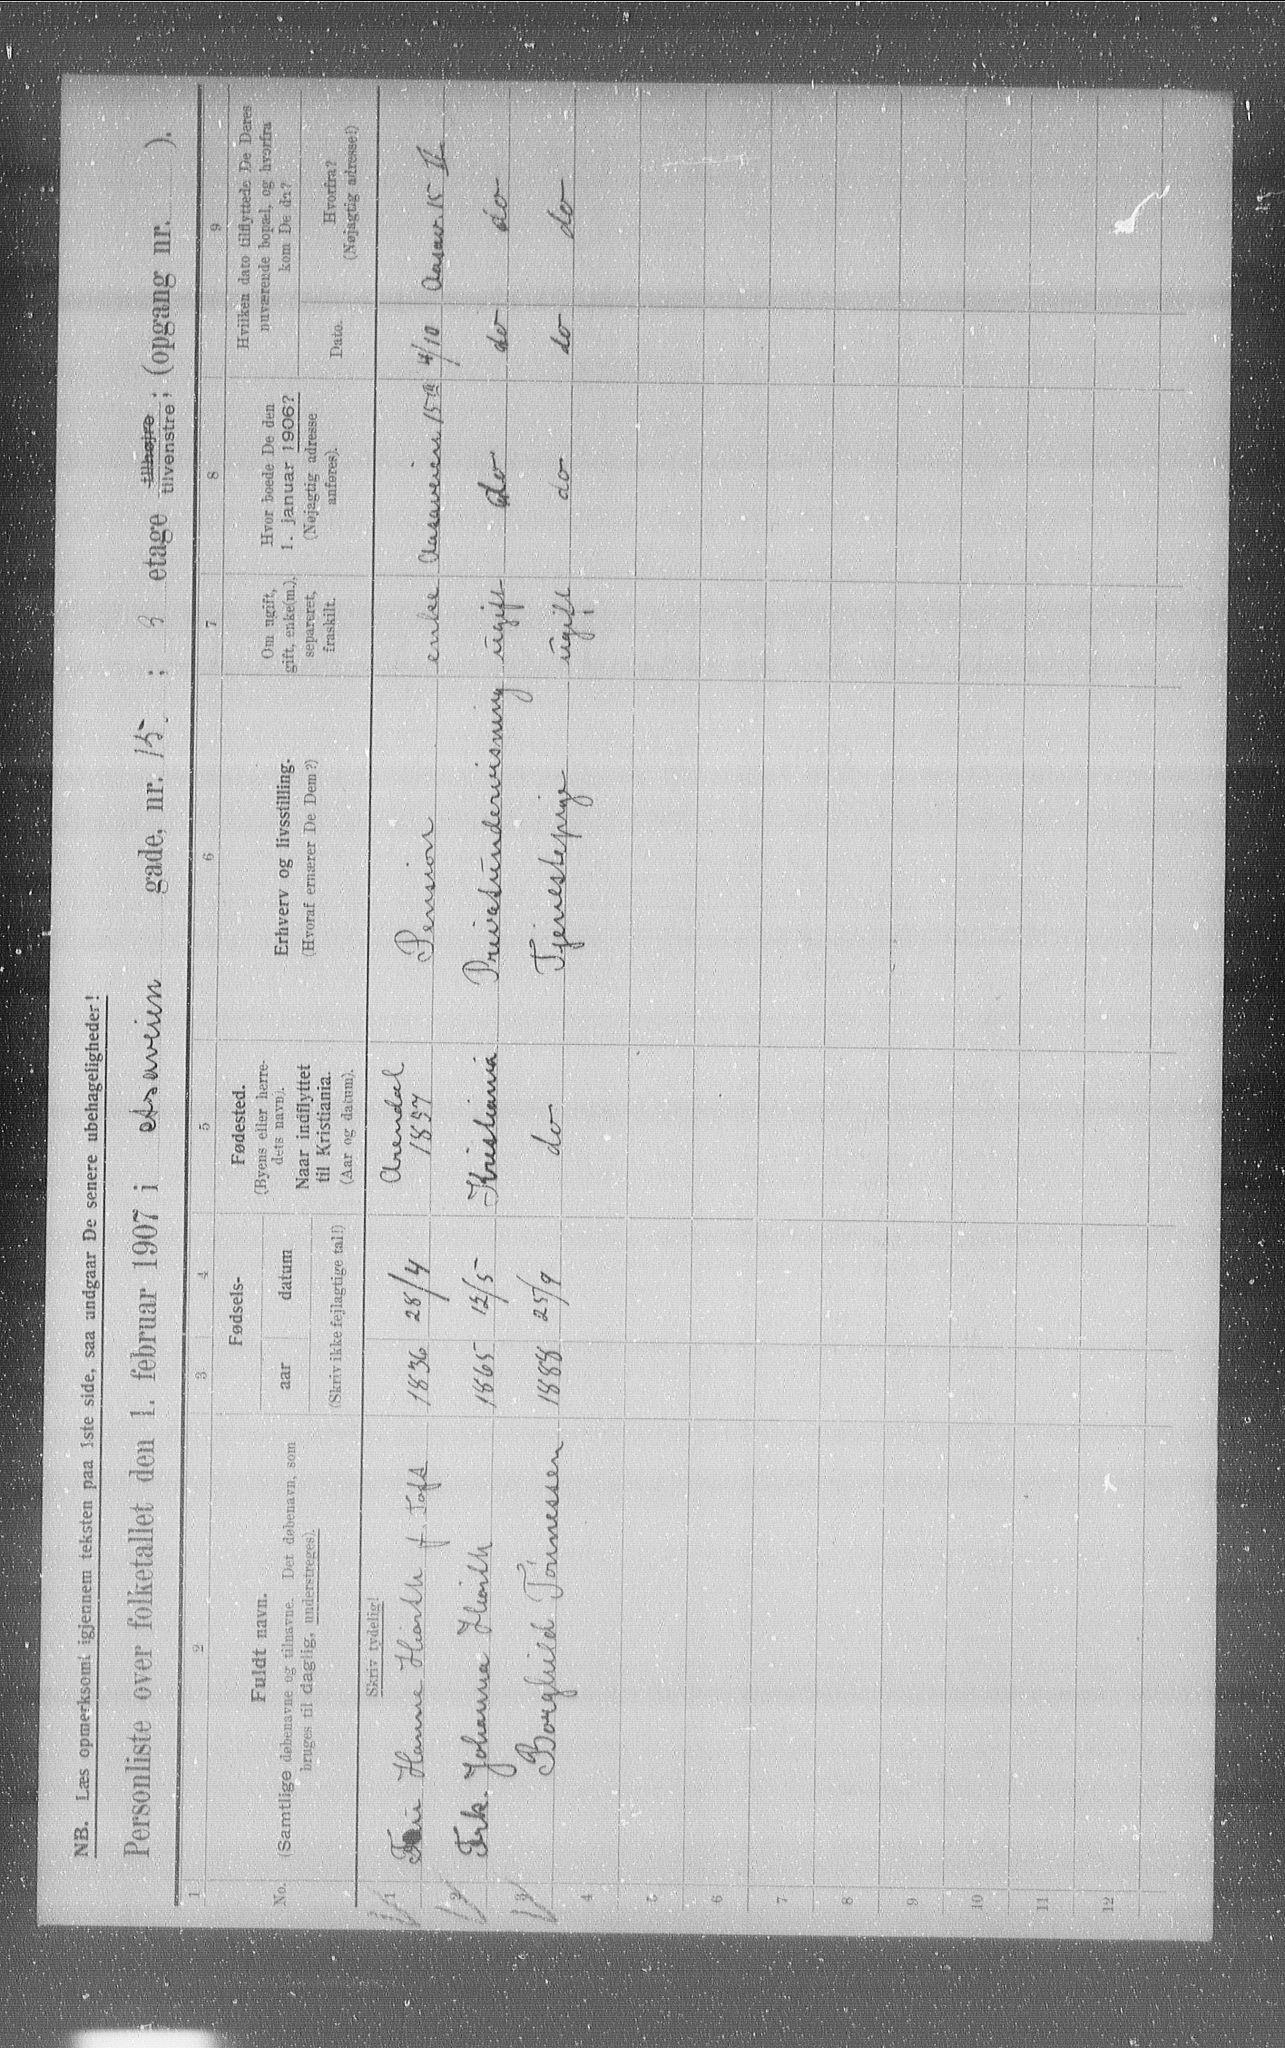 NB. Læs opmerksomt igjennem teksten paa 1ste side, saa undgaar De senere ubehageligheder!
Personliste over folketallet den 1. februar 1907 i Asaveien gade, nr. 15 ; 3 etage tilhøjre tilvenstre; (opgang nr. ).
1 2 3 4 5 6 7 8 9
No.
Fuldt navn.
(Samtlige døbenavne og tilnavne. Det døbenavn, som
bruges til daglig, understreges).
Fødsels-
aar datum
(Skriv ikke fejlagtige tal!)
Fødested.
(Byens eller herre-
dets navn).
Naar indflyttet
til Kristiania.
(Aar og datum).
Erhverv og livsstilling.
(Hvoraf ernærer De Dem?)
Om ugift,
gift, enke(m.),
separeret,
fraskilt.
Hvor boede De den
1. januar 1906?
(Nøjagtig adresse
anføres).
Hvilken dato tilflyttede De Deres
nuværende bopæl, og hvorfra
kom De da?
Dato.
Hvorfra?
(Nøjagtig adresse!)
Skriv tydelig!
1 Fru Hanne Hiorth f. Toft 1836 28/4 Arendal 1857 Pension enke Aasaveien 15 III 4/10 Aasav. 15 II
2 Frk. Johanna Hiorth 1865 12/5 Kristiania Privatundervisning ugift do do do
3 Borghild Tønnessen 1888 25/9 do Tjenestepige ugift do do do
4
5
6
7
8
9
10
11
12